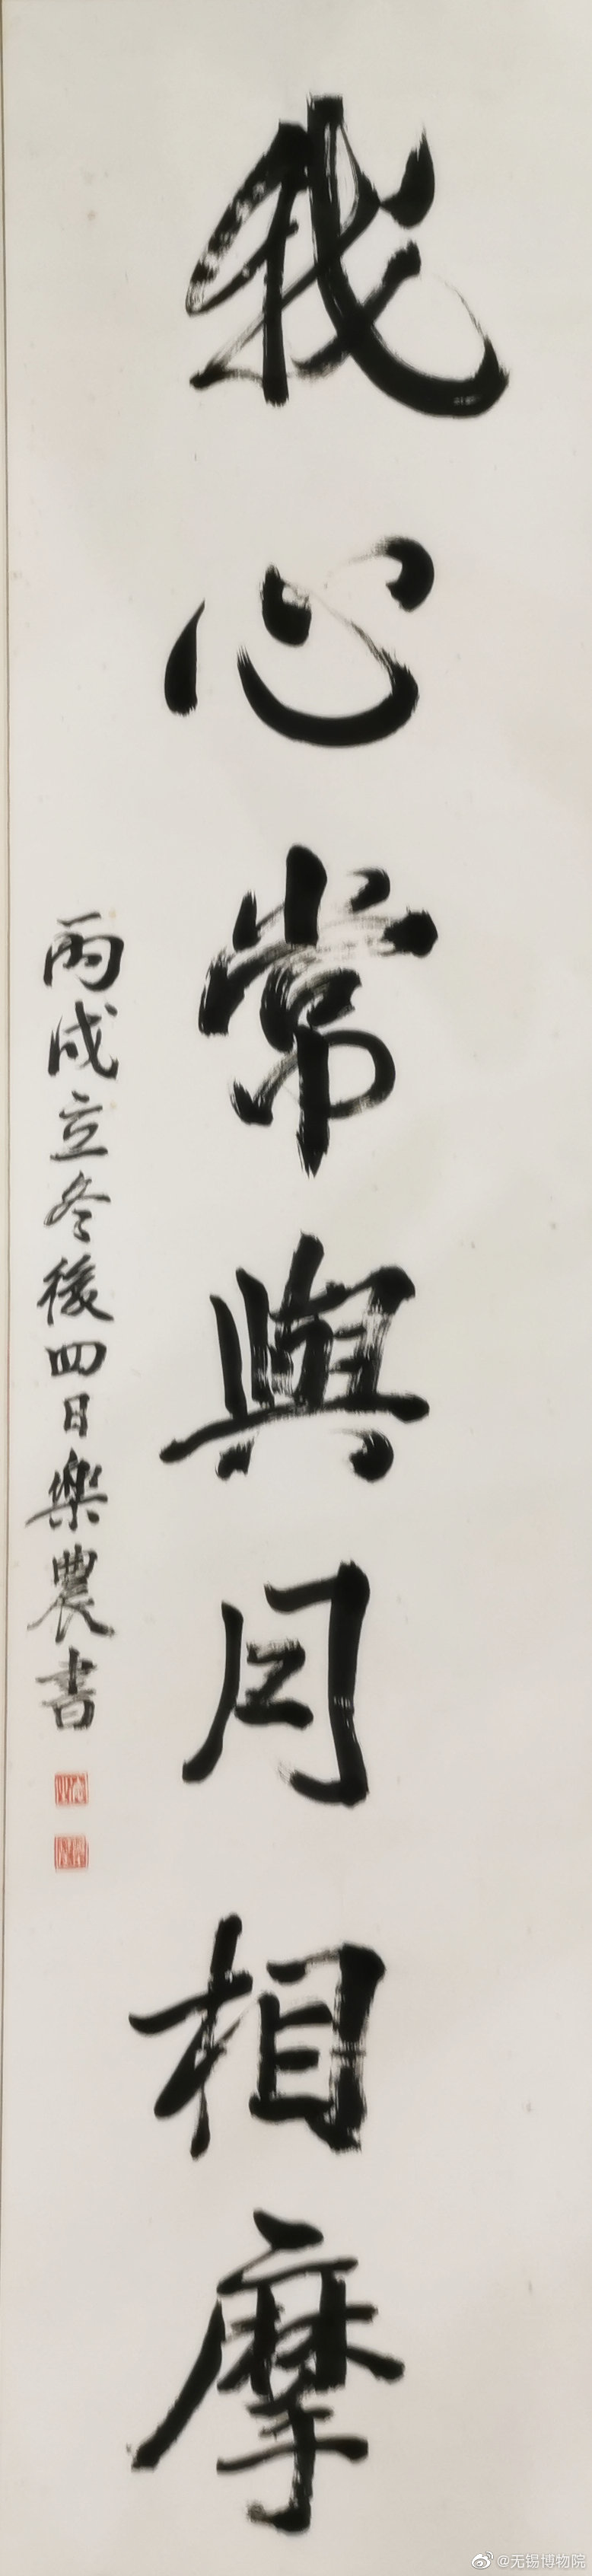 我心常與月相摩
丙戌立冬後四日樂農書
@无锡博物院